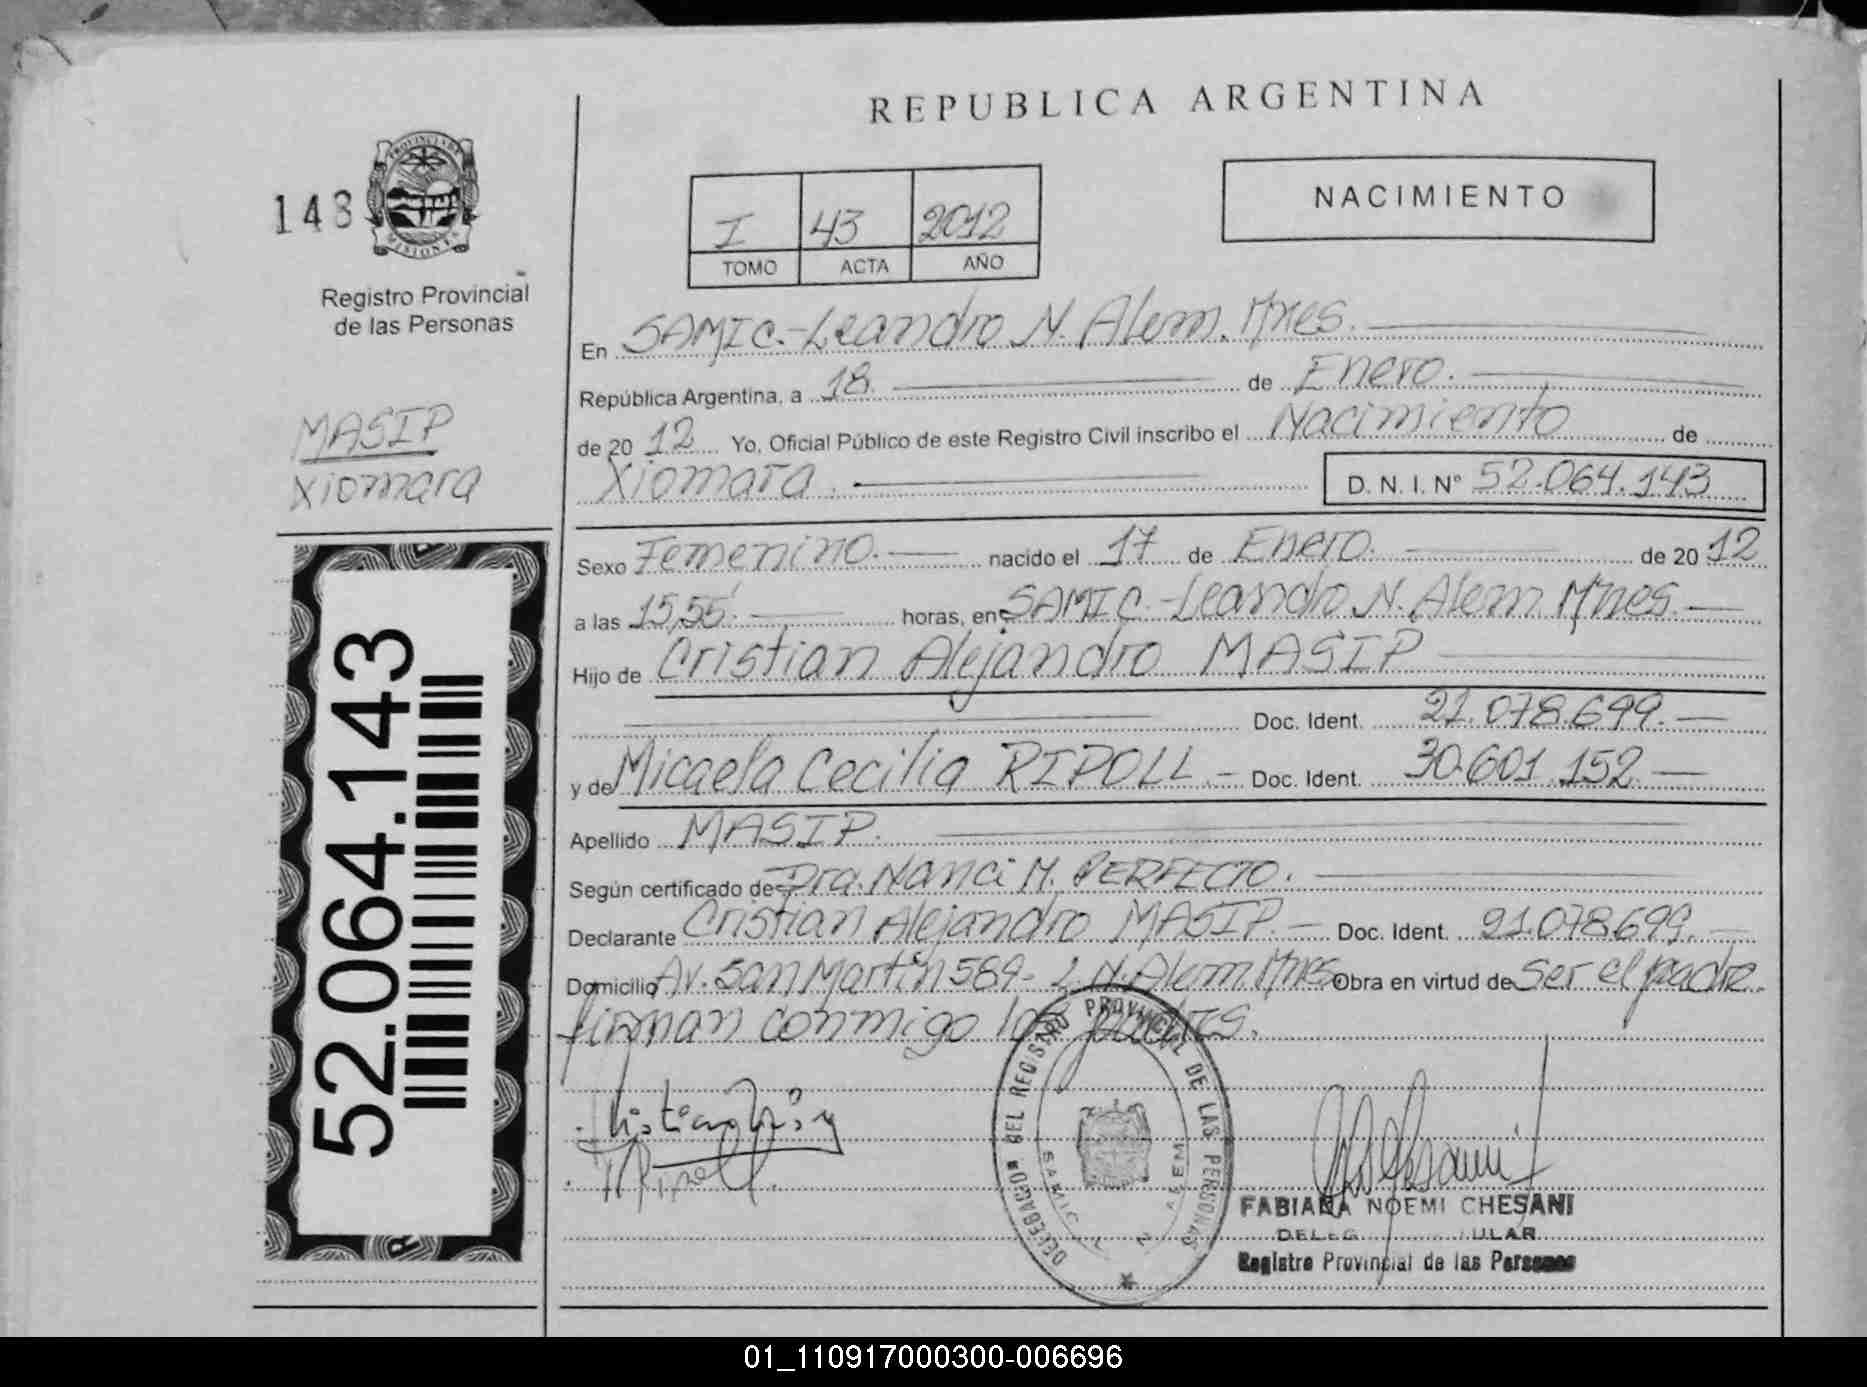 REPUBLICA ARGENTINA
148
PROVINCIA DE
MISIONES
Registro Provincial
de las Personas
I 43 2012
TOMO ACTA AÑO
NACIMIENTO
MASIP
Xiomara
52.064.143
En SAMIC.-Leandro N. Alem. Mnes.
República Argentina, a 18. de Enero.
de 20 12 Yo, Oficial Público de este Registro Civil inscribo el Nacimiento de
Xiomara. D. N. I. N° 52.064.143
Sexo Femenino. nacido el 17 de Enero. de 20 12
a las 15,55 horas, en SAMIC.-Leandro N. Alem Mnes.
Hijo de Cristian Alejandro MASIP
Doc. Ident. 21.078.699.
y de Micaela Cecilia RIPOLL.- Doc. Ident. 30.601.152.
Apellido MASIP.
Según certificado de Dra. Nanci M. PERFECTO.
Declarante Cristian Alejandro MASIP. Doc. Ident. 21.078.699.
Domicilio Av. San Martín 589- L.N. Alem Mnes Obra en virtud de Ser el padre.
firman conmigo los padres.
DELEGACION DEL REGISTRO PROVINCIAL DE LAS PERSONAS
SAMIC L N ALEM
FABIANA NOEMI CHESANI
Registro Provincial de las Personas
01_110917000300-006696